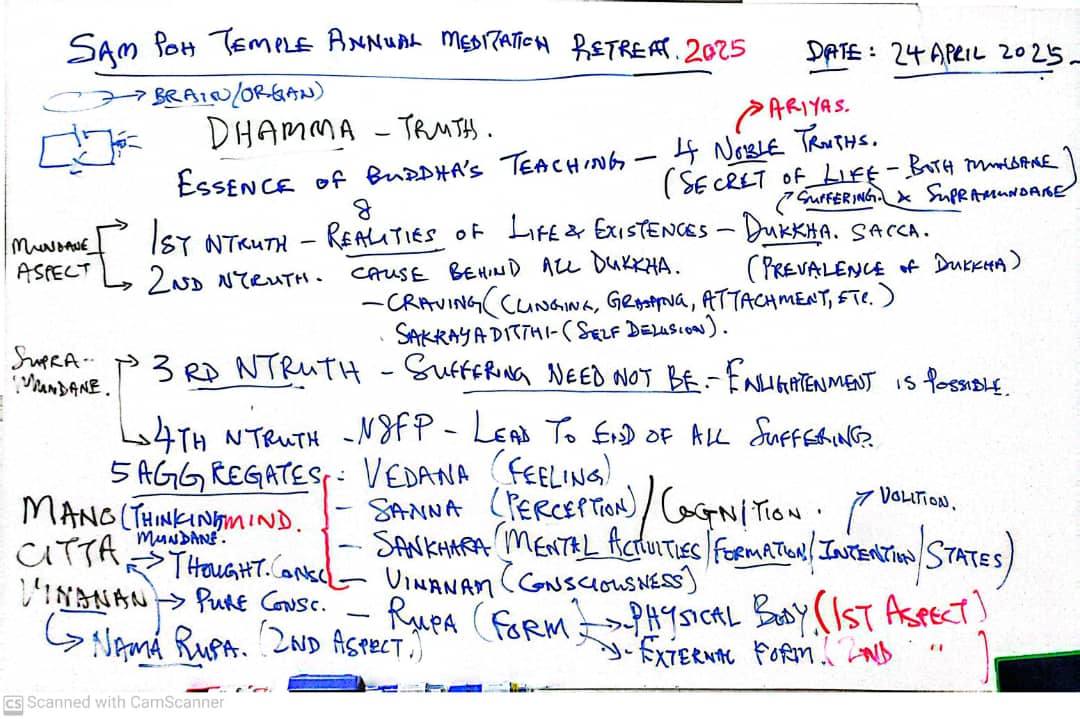 SAM POH TEMPLE ANNUAL MEDITATION RETREAT. 2025 DATE: 24 APRIL 2025.
→ BRAIN/ORGAN)
→ ARIYAS.
DHAMMA – TRUTH.
ESSENCE OF BUDDHA'S TEACHING – 4 NOBLE TRUTHS.
(SECRET OF LIFE – BOTH MUNDANE
SUFFERING. & SUPRAMUNDANE)
MUNDANE ASPECT
1ST NTRUTH – REALITIES OF LIFE & EXISTENCES – DUKKHA. SACCA.
2ND NTRUTH. CAUSE BEHIND ALL DUKKHA. (PREVALENCE OF DUKKHA)
– CRAVING (CLINGING, GRASPING, ATTACHMENT, ETC.)
SAKRAYADITTHI – (SELF DELUSION).
SUPRA-- MUNDANE.
3RD NTRUTH – SUFFERING NEED NOT BE. – ENLIGHTENMENT IS POSSIBLE.
4TH NTRUTH – N8FP – LEAD TO END OF ALL SUFFERING.
5 AGGREGATES: VEDANA (FEELING)
MANO (THINKING MIND. – SANNA (PERCEPTION)/COGNITION. → VOLITION.
MUNDANE.
CITTA → THOUGHT. CONSC – SANKHARA (MENTAL ACTIVITIES/FORMATION/INTENTION/STATES)
– VINANAM (CONSCIOUSNESS)
VINANAN → PURE CONSC. – RUPA (FORM) → PHYSICAL BODY. (1ST ASPECT)
→ NAMA RUPA. (2ND ASPECT.) → – EXTERNAL FORM. (2ND " )
CS Scanned with CamScanner